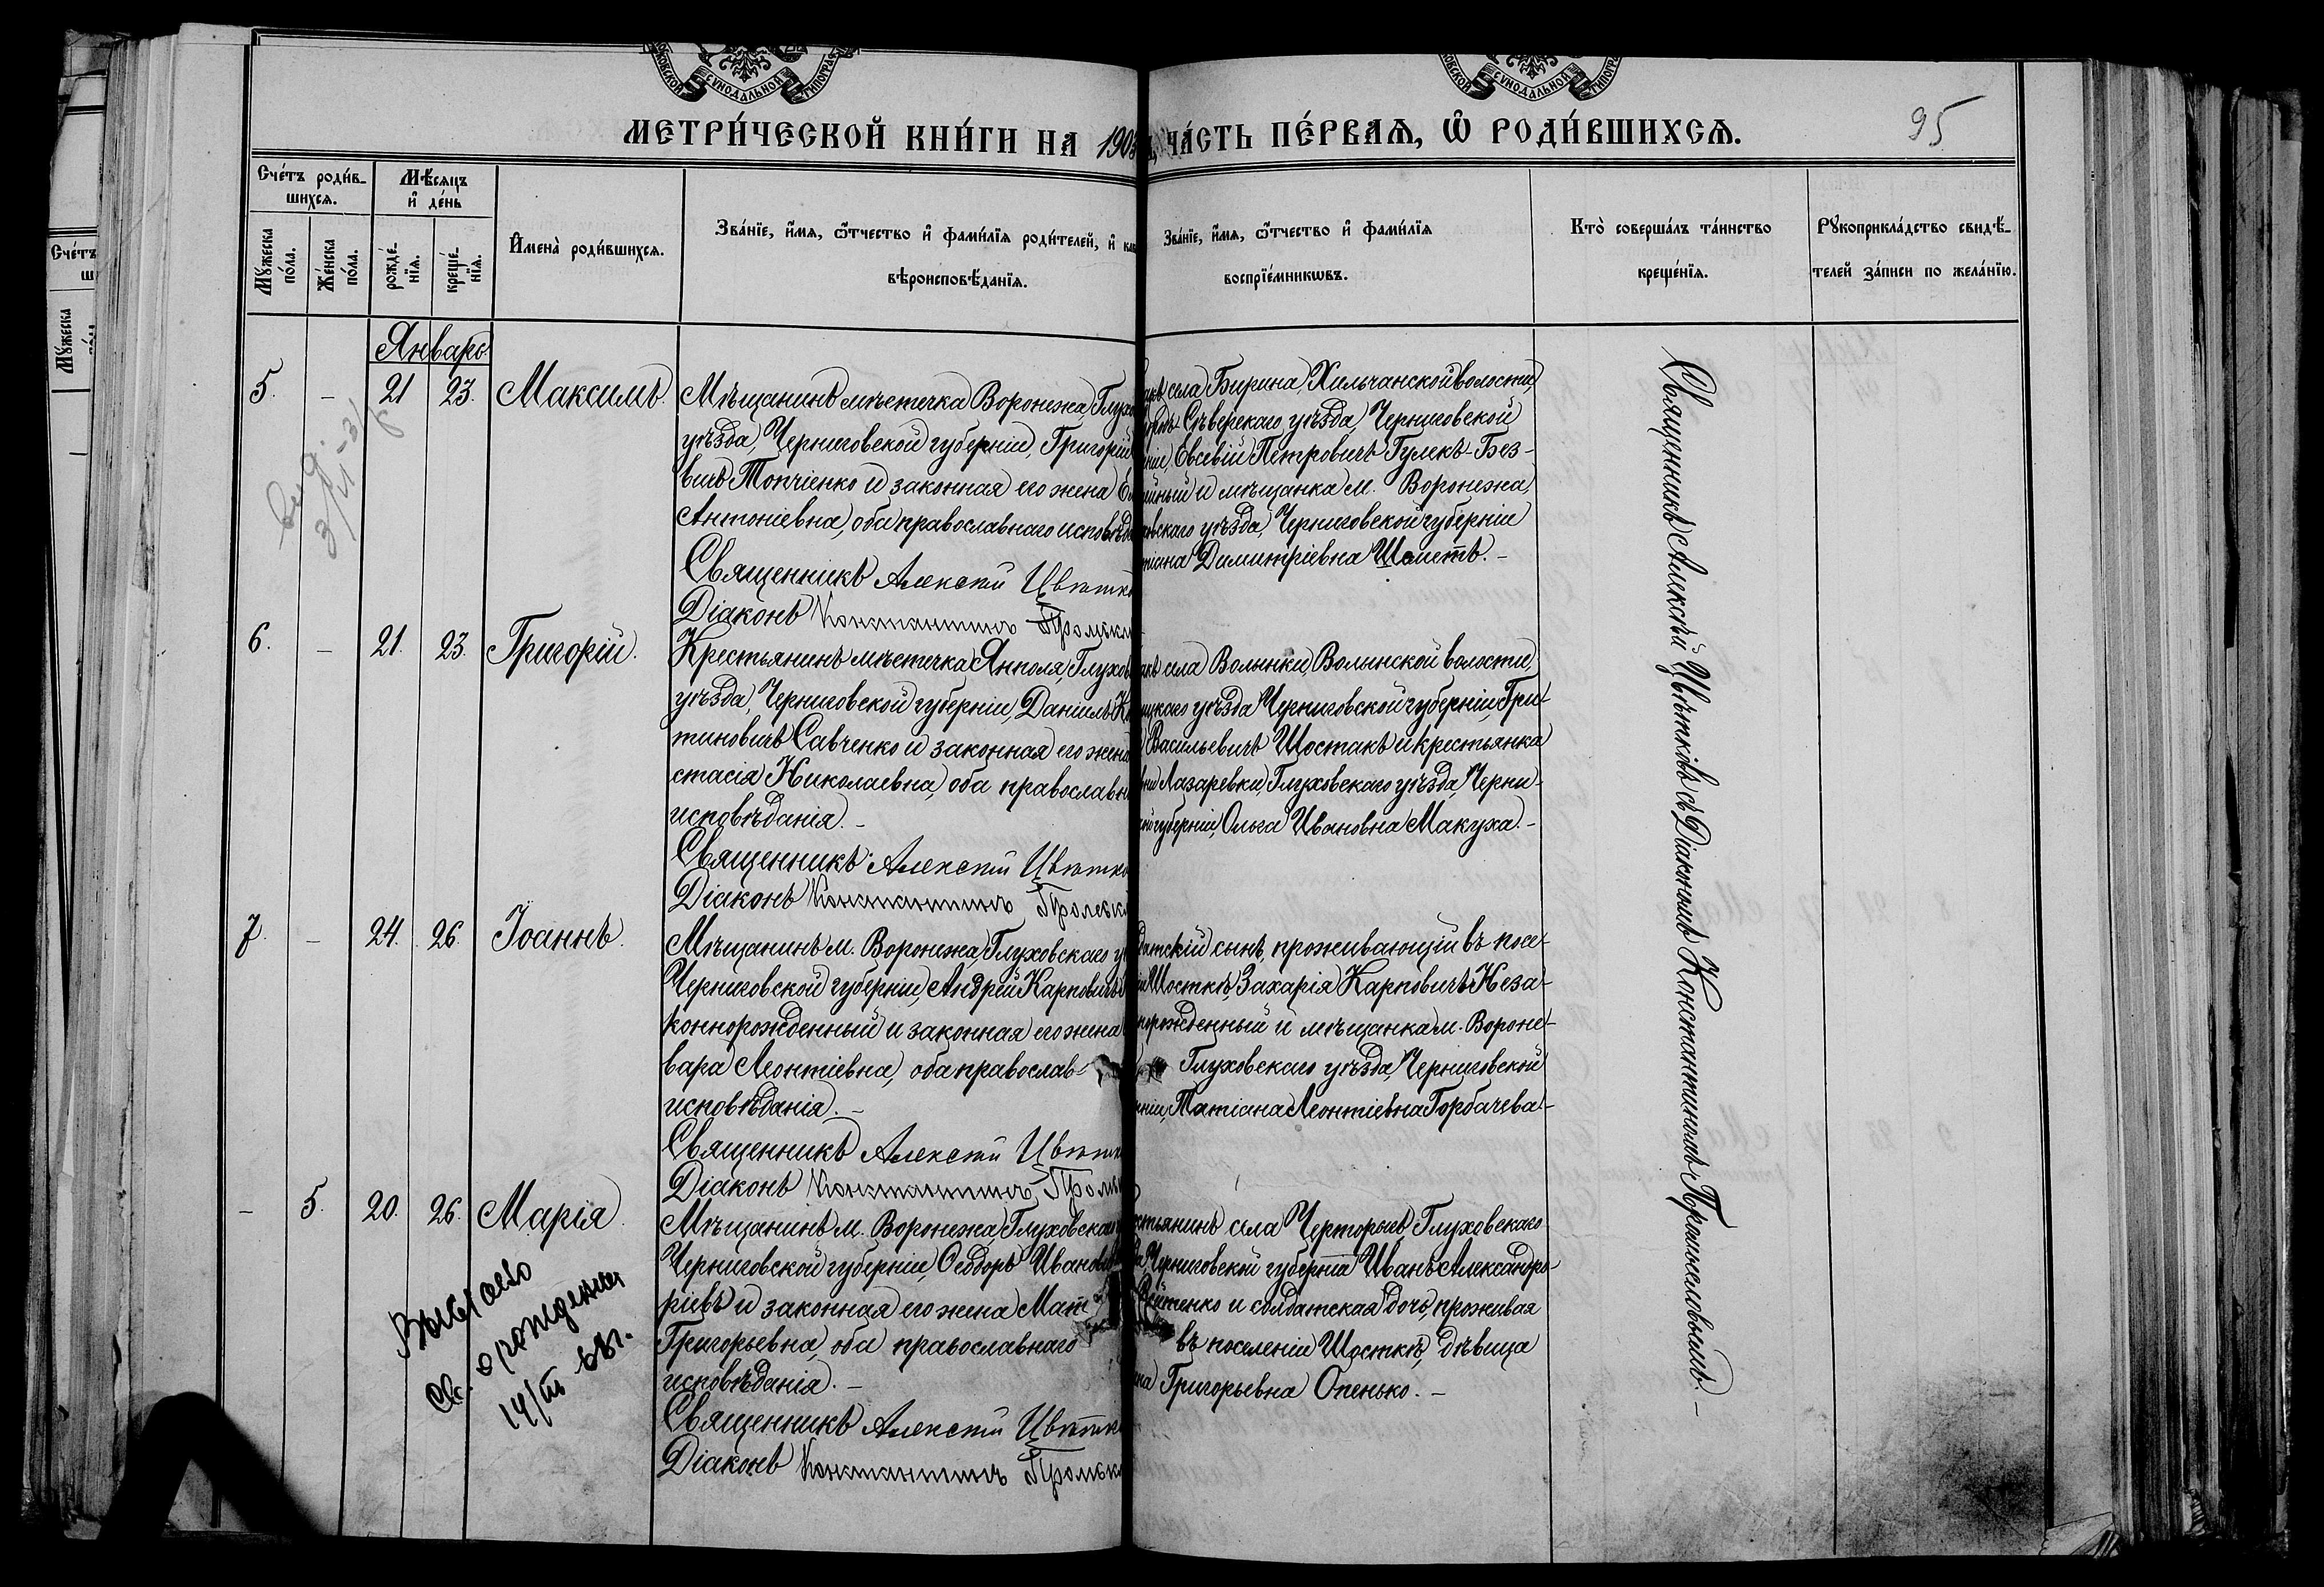 МОСКОВСКОЙ СѴНОДАЛЬНОЙ ТИПОГРА
КОВСКОЙ СѴНОДАЛЬНОЙ ТИПОГР
МЕТРИ́ЧЕСКОЙ КНИ́ГИ НА 1903 ЧА́СТЬ ПЕ́РВАѦ, Ѡ҆ РОДИ́ВШИХСѦ.
95
Сче́тъ роди́в-
шихсѧ.
Мѣ́сѧцъ
и҆ де́нь
Мꙋ́жеска
по́ла.
Же́нска
по́ла.
рожде́-
нїѧ.
креще́-
нїѧ.
И҆мена̀ роди́вшихсѧ.
Зва́нїе, и҆́мѧ, ѻ҆́тчество и҆ фами́лїѧ роди́телей, и҆
вѣроисповѣ́данїѧ.
Зва́нїе, и҆́мѧ, ѻ҆́тчество и҆ фами́лїѧ
воспрїе́мникѡвъ.
Кто̀ соверша́лъ та́инство
креще́нїѧ.
Рꙋкоприкла́дство свидѣ́-
телей за́писи по жела́нїю.
Сче́тъ
Мꙋ́жеска
Январь.
5. - 21 23. Максимъ.
Мѣщанинъ мѣстечка Воронежа, Глухо
уѣзда, Черниговской губерніи, Григорій
вичъ Топчіенко и законная его жена
Антоніевна, оба православнаго исповѣда
Священникъ Алексѣй Цвѣтк
Діаконъ Константинъ Промысл
села Бирина, Хильчанской волости,
Сѣверскаго уѣзда, Черниговской
ніи, Евсевій Петровичъ Гулекъ-Без-
ный и мѣщанка м. Воронежа,
овскаго уѣзда, Черниговской губерніи
тіана Димитріевна Шолотъ. -
3/VI
6. - 21. 23. Григорій.
Крестьянинъ мѣстечка Янполя, Глухов
уѣзда, Черниговской губерніи, Даніилъ К
тиновичъ Савченко и законная его жена
стасія Николаевна, оба православн
исповѣданія. -
Священникъ Алексѣй Цвѣтко
Діаконъ Константинъ Промысл
села Волынки, Волынской волости,
ицкаго уѣзда Черниговской губерніи, Гри-
Васильевичъ Шостакъ и крестьянка
вни Лазаревки, Глуховскаго уѣзда, Черни-
губерніи, Ольга Ивановна Макуха. -
7. - 24. 26. Іоаннъ.
Мѣщанинъ м. Воронежа, Глуховскаго у
Черниговской губерніи, Андрей Карповичъ
коннорожденный и законная его жена
вара Леонтіевна, оба православ-
исповѣданія. -
Священникъ Алексѣй Цвѣтк
Діаконъ Константинъ Промыс
датскій сынъ, проживающій въ посе-
Шосткѣ, Захарія Карповичъ Неза-
норожденный и мѣщанка м. Вороне-
Глуховскаго уѣзда, Черниговской
рніи, Татіана Леонтіевна Горбачева. -
- 5. 20. 26. Марія.
Мѣщанинъ м. Воронежа, Глуховскаго
Черниговской губерніи, Ѳеодоръ Иванов
ріевъ и законная его жена Мат
Григорьевна, оба православнаго
исповѣданія. -
Священникъ Алексѣй Цвѣтк
Діаконъ Константинъ Промысл
стьянинъ села Черторыгъ, Глуховскаго
Черниговской губерніи Иванъ Александро-
тенко и солдатская дочь, проживая
въ поселеніи Шосткѣ, дѣвица
на Григорьевна Опенько. -
св. о рождении
14/III 68г.
Священникъ Алексѣй Цвѣтковъ съ Діакономъ Константиномъ Промысловымъ. -